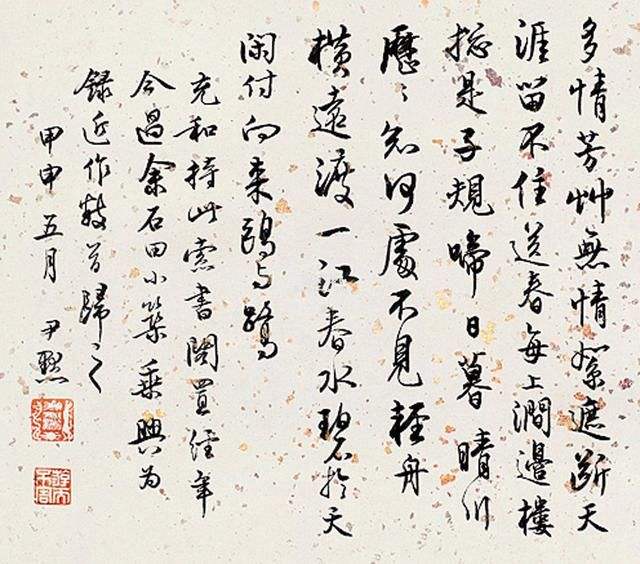 多情芳艸無情絮遮斷天
涯留不住送春每上澗邊樓
揔是子規啼日暮晴川
歷〻何處不見輕舟
橫遠渡一江春水碧於天
閑付向來鷗与鷺
充和持此索書閣置經年
今過余石田小築乘興为
録近作數首歸之
甲申五月 尹默